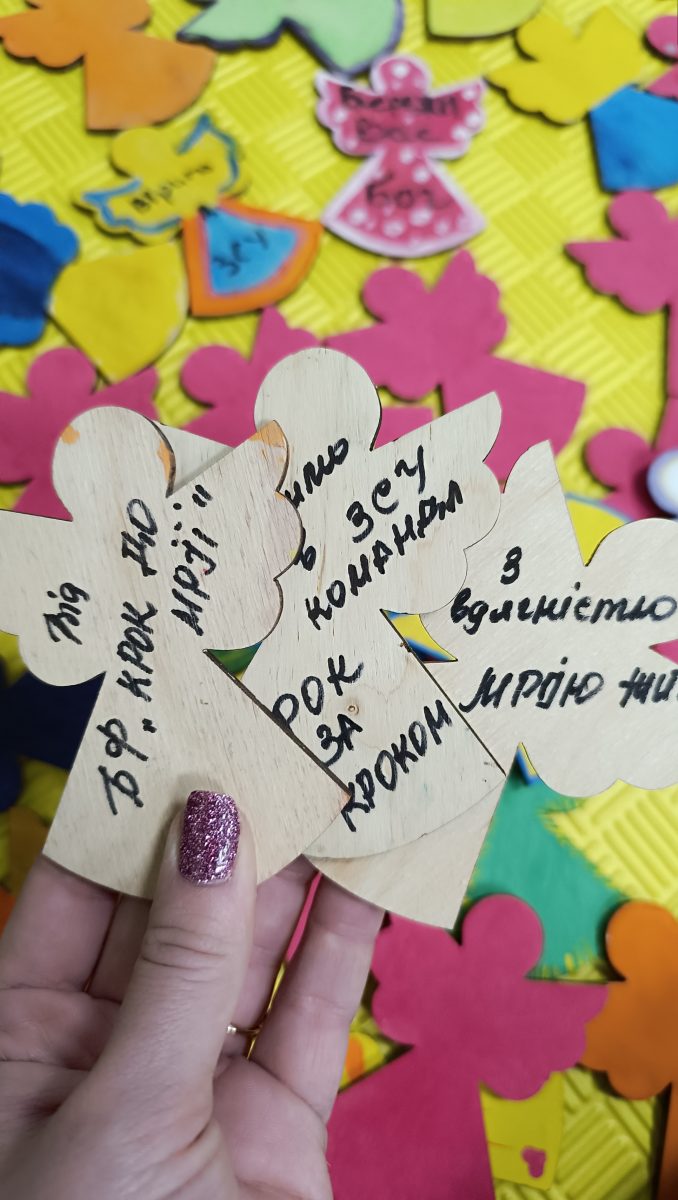 Вас
Бог
ЗСУ
Від
БФ „КРОК ДО
МРІЇ"
имо
в ЗСУ
КОМАНДА
РОК
ЗА
КРОКОМ
З
вдячністю
МРІЮ ЖИ